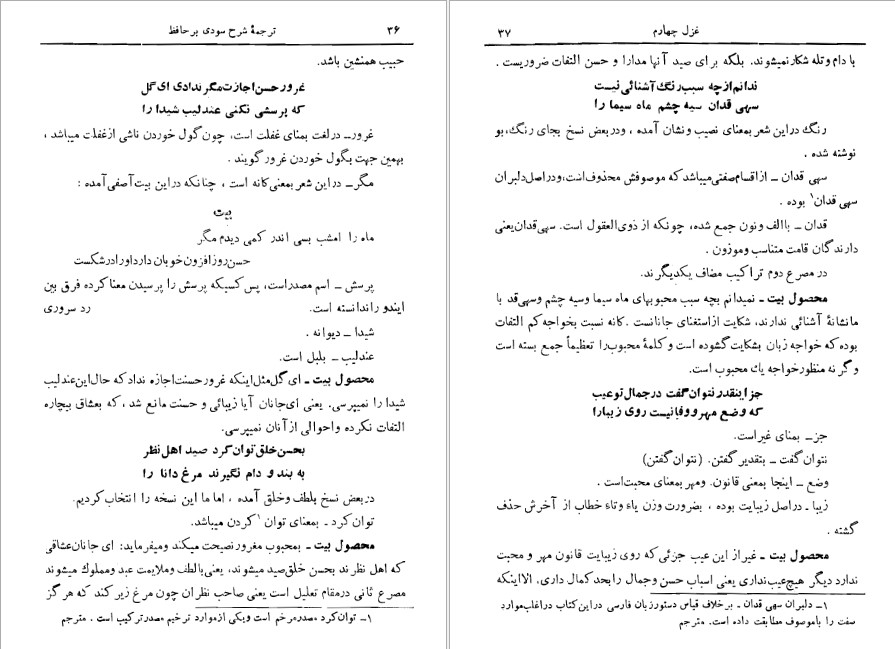 ۳۶ ترجمهٔ شرح سودی بر حافظ
حبیب همنشین باشد.
غرور حسن اجازت مگر ندادی ای گل
که پرسشی نکنی عندلیب شیدا را
غرور ــ در لغت بمنای غفلت است، چون گول خوردن ناشی ازغفلت میباشد ،
بهمین جهت بگول خوردن غرور گویند .
مگر ــ در این شعر بمعنی کانه است ، چنانکه در این بیت آصفی آمده :
بیت
ماه را امشب بسی اندر کمی دیدم مگر
حسن روز افزون خوبان دارد اورا درشکست
پرسش ــ اسم مصدراست، پس کسیکه پرسش را پرسیدن معنا کرده فرق بین
ایندو را ندانسته است. رد سروری
شیدا ــ دیوانه .
عندلیب ــ بلبل است.
محصول بیت ــ ای گل مثل اینکه غرور حسنت اجازه نداد که حال این عندلیب
شیدا را نمیپرسی. یعنی ای جانان آیا زیبائی و حسنت مانع شد ، که بعشاق بیچاره
التفات نکرده واحوالی از آنان نمیپرسی.
بحسن خلق توان کرد صید اهل نظر
به بند و دام نگیرند مرغ دانا را
در بعض نسخ بلطف وخلق آمده ، اما ما این نسخه را انتخاب کردیم.
توان کرد ــ بمعنای توان ۱ کردن میباشد.
محصول بیت ــ بمحبوب مغرور نصیحت میکند ومیفرماید: ای جانان عشاقی
که اهل نظرند بحسن خلق صید میشوند، یعنی بالطف وملایمت عبد ومملوك میشوند
مصرع ثانی درمقام تعلیل است یعنی صاحب نظران چون مرغ زیر کند که هر گز
۱ــ توان کرد مصدر مرخم است ویکی از موارد ترخیم مصدر ترکیب است . مترجم
غزل چهارم ۳۷
با دام وتله شکار نمیشوند. بلکه برای صید آنها مدارا و حسن التفات ضروریست .
ندانم از چه سبب رنگ آشنائی نیست
سهی قدان سیه چشم ماه سیما را
رنگ در این شعر بمعنای نصیب ونشان آمده ، ودر بعض نسخ بجای رنگ، بو
نوشته شده .
سهی قدان ــ از اقسام صفتی میباشد که موصوفش محذوف است، ودر اصل دلبران
سهی قدان ۱ بوده .
قدان ــ باالف ونون جمع شده، چونکه از ذوی العقول است. سهی قدان یعنی
دارندگان قامت متناسب وموزون .
در مصرع دوم تراکیب مضاف یکدیگرند.
محصول بیت ــ نمیدانم بچه سبب محبوبهای ماه سیما وسیه چشم وسهی قد با
مانشانهٔ آشنائی ندارند، شکایت ازاستغنای جانانست . کانه نسبت بخواجه کم التفات
بوده که خواجه زبان بشکایت گشوده است و کلمهٔ محبوب را تعظیماً جمع بسته است
و گر نه منظور خواجه یك محبوب است.
جز اینقدر نتوان گفت در جمال تو عیب
که وضع مهر و وفا نیست روی زیبا را
جز ــ بمنای غیر است.
نتوان گفت ــ بتقدیر گفتن. (نتوان گفتن)
وضع ــ اینجا بمعنی قانون. ومهر بمعنای محبت است .
زیبا ــ دراصل زیبایت بوده ، بضرورت وزن یاء وتاء خطاب از آخرش حذف
گشته .
محصول بیت ــ غیر از این عیب جزئی که روی زیبایت قانون مهر و محبت
ندارد دیگر هیچ عیب نداری یعنی اسباب حسن وجمال رابحد کمال داری. الااینکه
۱ــ دلبران سهی قدان ــ برخلاف قیاس دستور زبان فارسی در این کتاب در اغلب موارد
صفت را با موصوف مطابقت داده است. مترجم